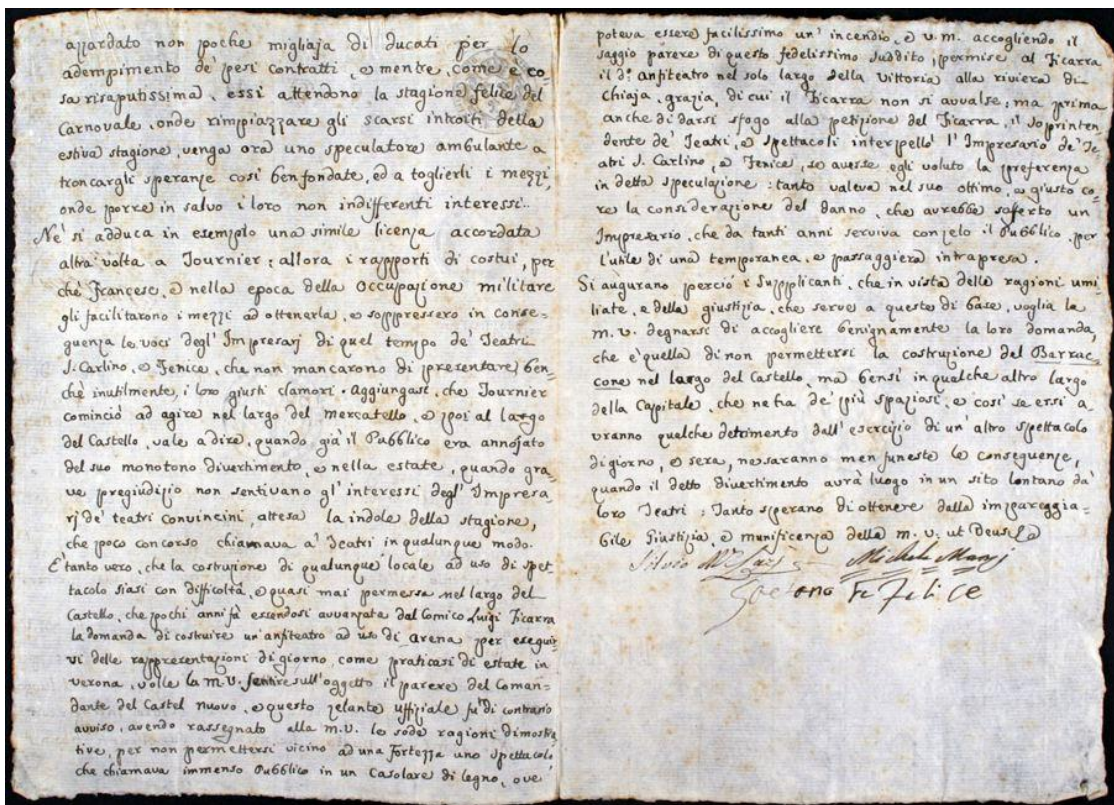 azzardato non poche migliaja di ducati per lo
adempimento de' pesi contratti, e mentre, come è co=
sa risaputissima, essi attendono la stagione felice del
Carnovale, onde rimpiazzare gli scarsi introiti della
estiva stagione, venga ora uno speculatore ambulante a
troncargli speranze così ben fondate, ed a toglierli i mezzi,
onde porre in salvo i loro non indifferenti interessi.
Nè si adduca in esempio una simile licenza accordata
altra volta a Tournier; allora i rapporti di costui, per
chè Francese, e nella epoca della occupazione militare
gli facilitarono i mezzi ad ottenerla, e soppressero in conse=
guenza le voci degl' Impresarj di quel tempo de' Teatri
S. Carlino, e Fenice, che non mancarono di presentare ben=
chè inutilmente, i loro giusti clamori. Aggiungasi, che Tournier
cominciò ad agire nel largo del mercatello, e poi al largo
del Castello, vale a dire, quando già il Pubblico era annojato
del suo monotono divertimento, e nella estate, quando gra
ve pregiudizio non sentivano gl' interessi degl' Impresa
rj de' teatri convincini, attesa la indole della stagione,
che poco concorso chiamava a' Teatri in qualunque modo.
E' tanto vero, che la costruzione di qualunque locale ad uso di spet
tacolo siasi con difficoltà, e quasi mai permessa nel largo del
Castello, che pochi anni fà essendosi avvanzata dal Comico Luigi Ficarra
la domanda di costruire un anfiteatro ad uso di arena per eseguir
vi delle rappresentazioni di giorno, come praticasi di estate in
verona, volle la M.V. sentire sull' oggetto il parere del Coman=
dante del Castel nuovo, e questo zelante uffiziale fu di contrario
avviso, avendo rassegnato alla M.V. le sode ragioni dimostra
tive, per non permettersi vicino ad una Fortezza uno spettacolo
che chiamava immenso Pubblico in un Casolare di legno, ove
poteva essere facilissimo un' incendio, e V.M. accogliendo il
saggio parere di questo fedelissimo suddito, permise al Ficarra
il d.º anfiteatro nel solo largo della Vittoria alla riviera di
Chiaja, grazia, di cui il Ficarra non si avvalse: ma prima
anche di darsi sfogo alla petizione del Ficarra, il Soprinten=
dente de' Teatri, e Spettacoli interpellò l' Impresario de' Te
atri S. Carlino, e Fenice, se avesse egli voluto la preferenza
in detta speculazione: tanto valeva nel suo ottimo, e giusto co=
re la considerazione del danno, che avrebbe sofferto un
Impresario, che da tanti anni serviva con zelo il Pubblico, per
l' utile di una temporanea, e passaggiera intrapresa.
Si augurano perciò i Supplicanti, che in vista delle ragioni umi=
liate, e della giustizia, che serve a queste di base, voglia la
M.V. degnarsi di accogliere benignamente la loro domanda,
che è quella di non permettersi la costruzione del Barrac=
cone nel largo del Castello, ma bensì in qualche altro largo
della Capitale, che ne ha de' più spaziosi, e così se essi a=
vranno qualche detrimento dall' esercizio di un' altro spettacolo
di giorno, e sera, ne saranno men funeste le conseguenze,
quando il detto divertimento avrà luogo in un sito lontano da'
loro Teatri: Tanto sperano di ottenere dalla impareggia=
bile Giustizia, e munificenza della M.V. ut Deus
Silvio M.ª
Gaetano De Felice